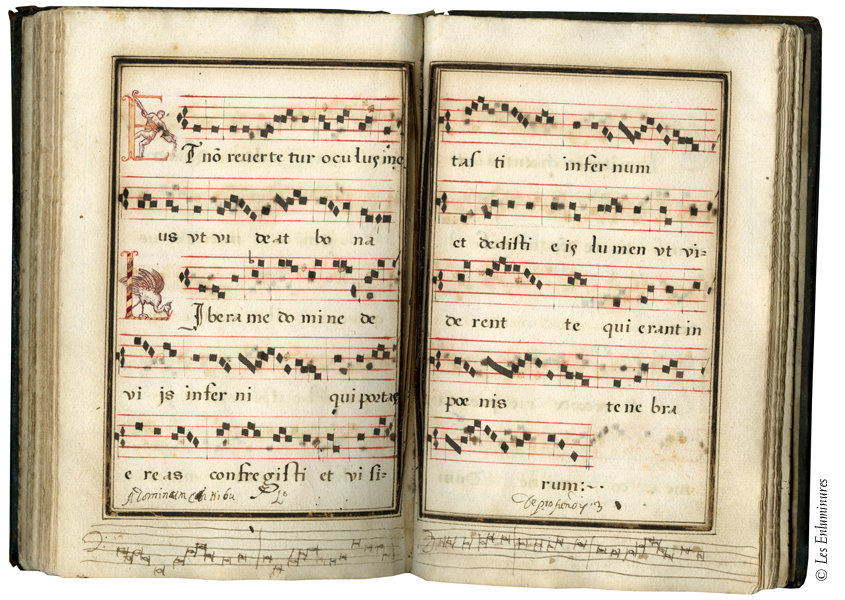 ET nõ reverte tur oculus me
us vt vi de at bo na
LIbera me do mi ne de
vi js infer ni qui portas
e re as confre gisti et vi si-
tas ti infer num
et dedisti e is lu men vt vi-
de rent te qui erant in
poe nis te ne bra
rum:~
© Les Enluminures